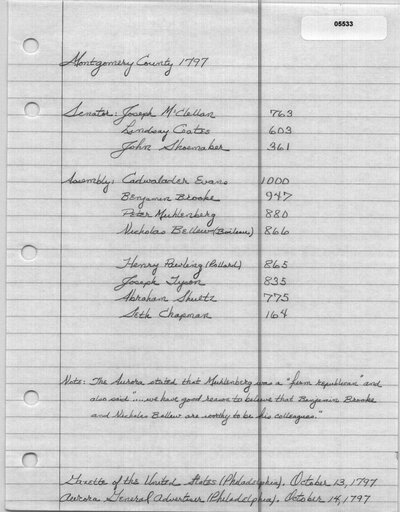 05533
Montgomery County 1797
Senator: Joseph McClellan 763
Lindsay Coates 603
John Shoemaker 361
Assembly: Cadwalader Evans 1000
Benjamin Brooke 947
Peter Muhlenberg 880
Nicholas Bellew (Boileau) 866
Henry Pawling (Pollard) 865
Joseph Tyson 835
Abraham Shultz 775
Seth Chapman 164
Note: The Aurora stated that Muhlenberg was a "firm republican" and
also said "....we have good reason to believe that Benjamin Brooke
and Nicholas Bellew are worthy to be his colleagues."
Gazette of the United States (Philadelphia). October 13, 1797
Aurora General Advertiser (Philadelphia). October 14, 1797